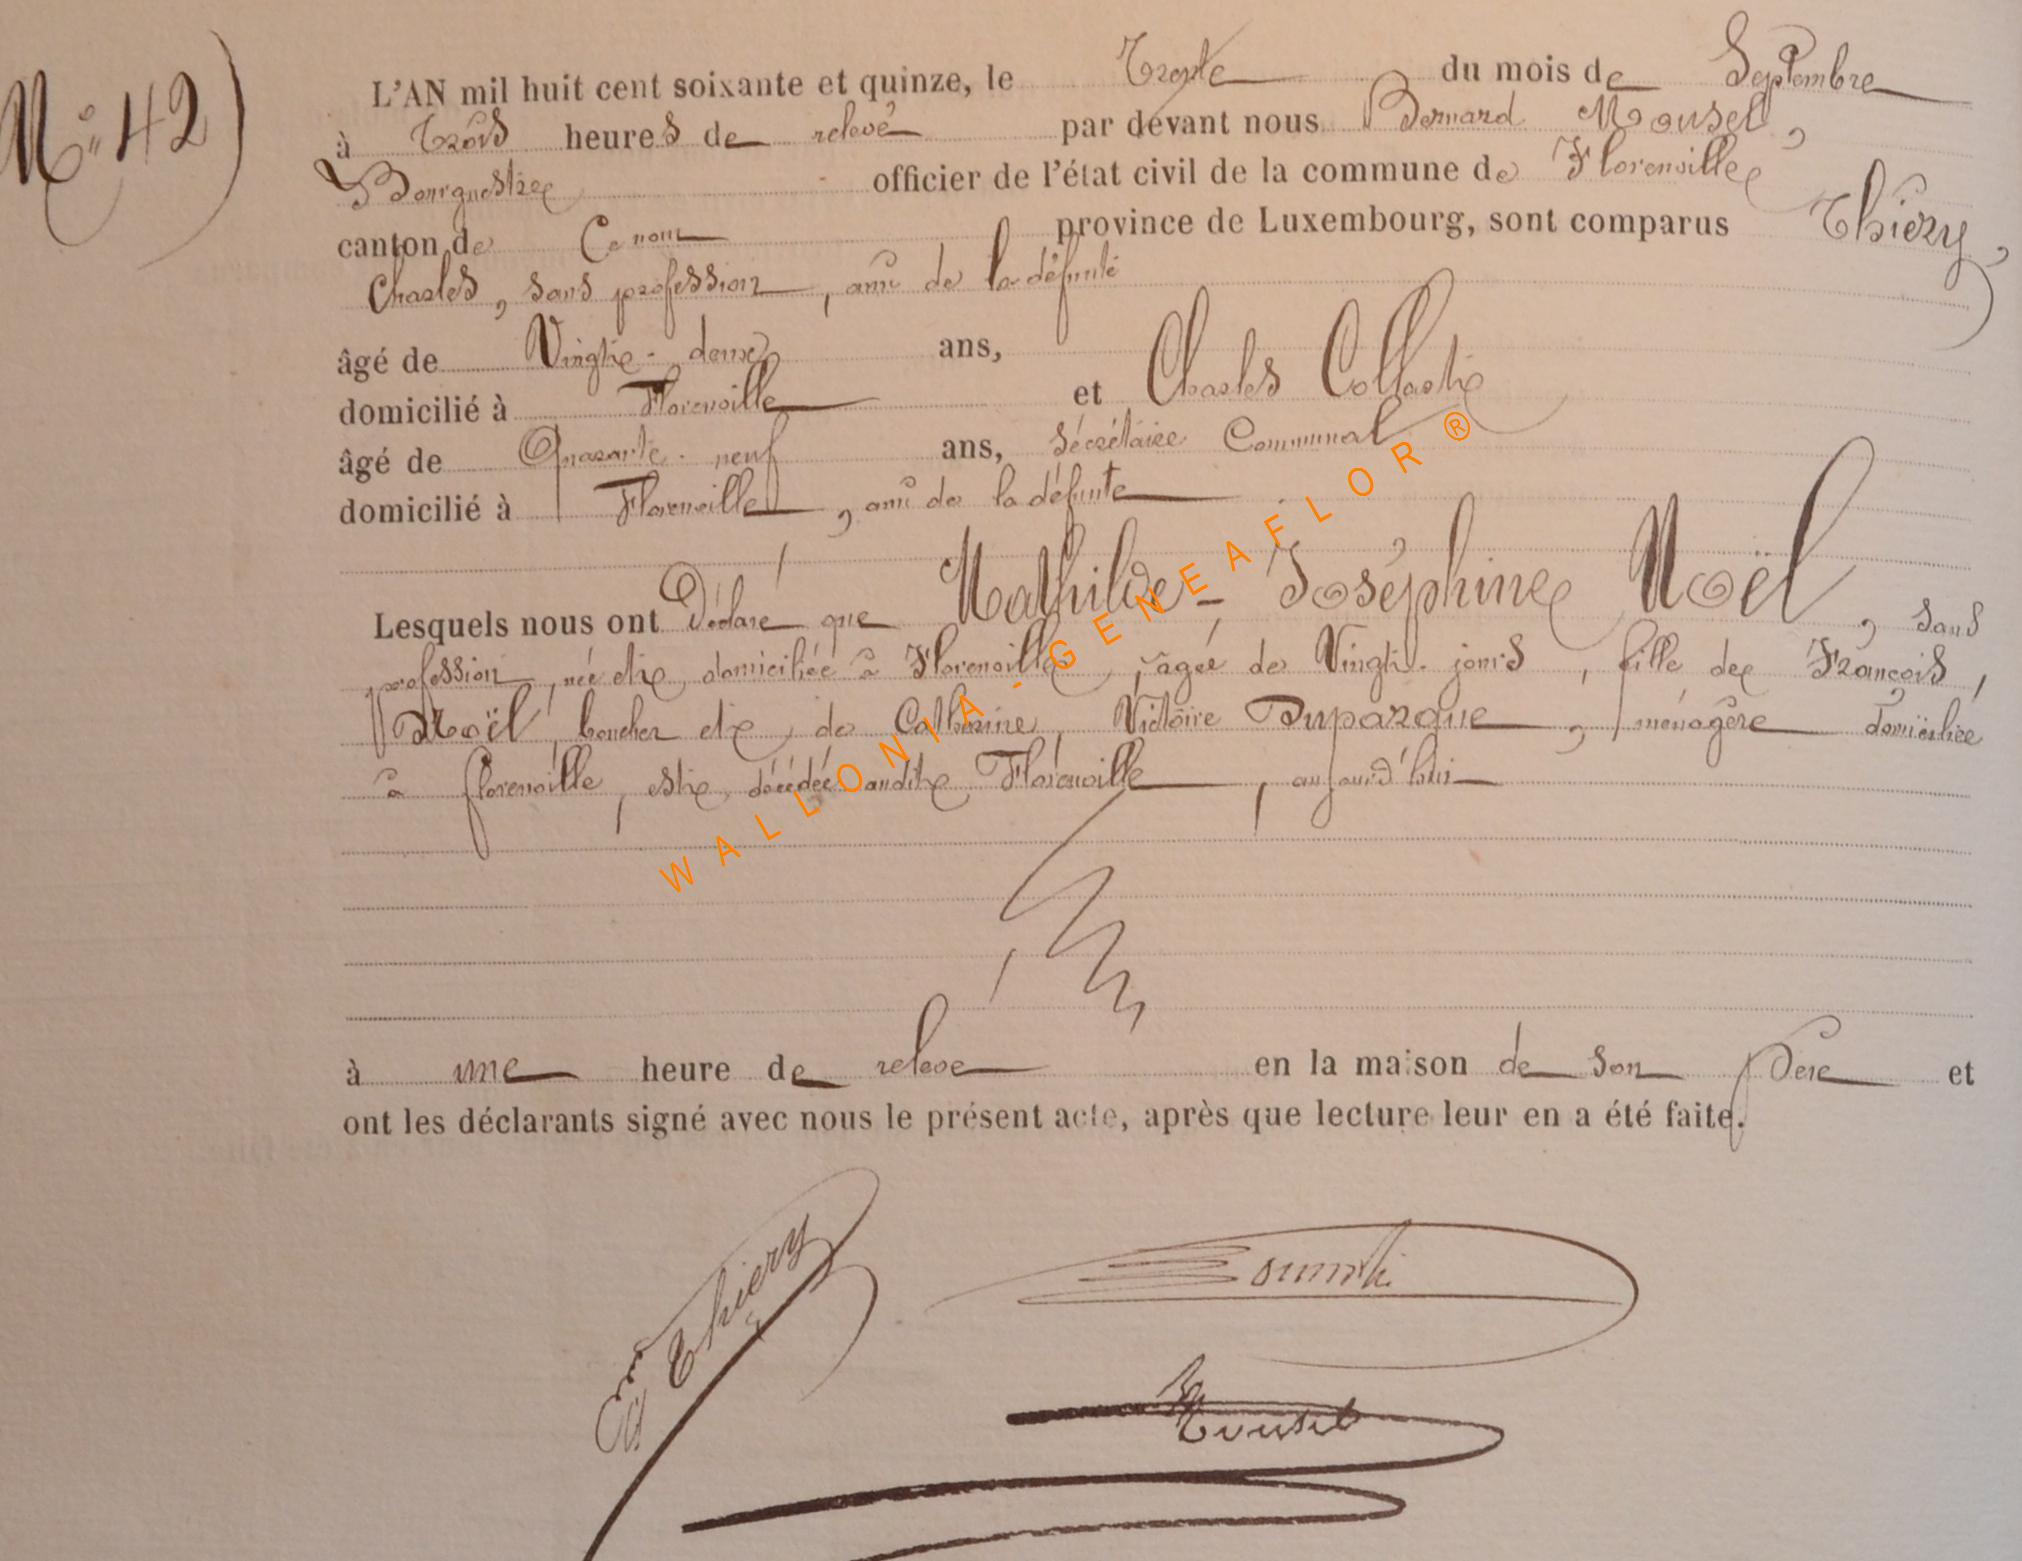 N° 42)
L'AN mil huit cent soixante et quinze, le Trente du mois de Septembre
à Trois heures de relevé par devant nous Bernard Mousel,
Bourgmestre officier de l'état civil de la commune de Florenville
canton de Ce nom province de Luxembourg, sont comparus Thiéry,
Charles, sans profession, ami de la défunte
âgé de Vingt-deux ans,
domicilié à Florenville et Charles
âgé de Quarante-neuf ans, Sécrétaire Communal
domicilié à Florenville, ami de la défunte
Lesquels nous ont Déclaré que Mathilde-Joséphine Noël, sans
profession, née et domiciliée à Florenville, âgée de Vingt-jours, fille de François,
Noël boucher et de Catherine, Victoire Duparque, ménagère domiciliée
à florenville, est décédée audit Florenville, aujourd'hui
à une heure de relevé en la maison de son Père et
ont les déclarants signé avec nous le présent acte, après que lecture leur en a été faite.
Thiéry
Mousel
WALLONIA - GENEAFLOR ®